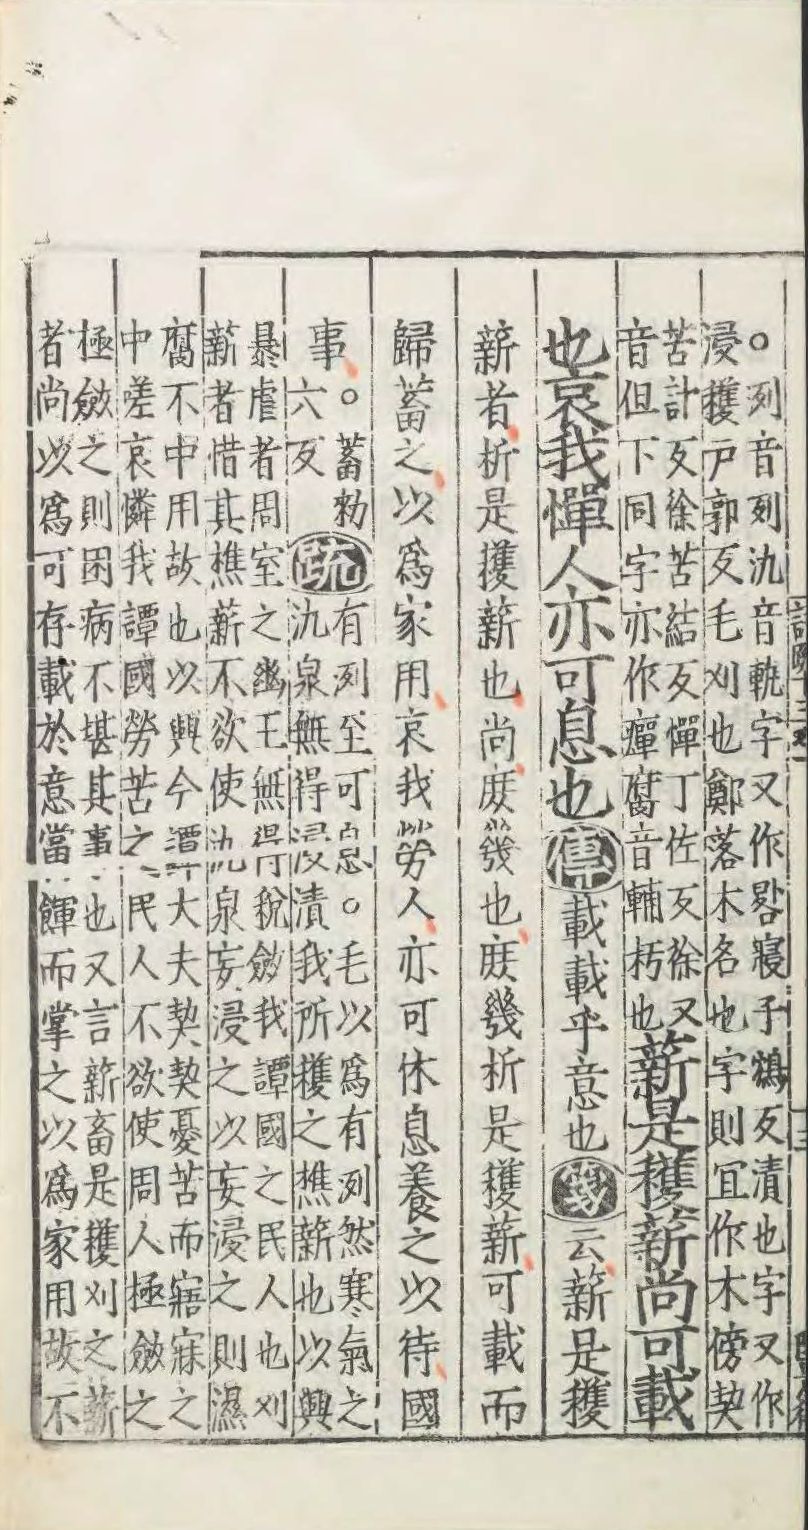 。列音列氿音軌字又作晷寢子鴆反漬也字又作
浸穫戸郭反毛刈也鄭落木名也字則冝作木傍契
苦計反徐苦結反憚丁佐反徐又
音但下同字亦作癉腐音輔朽也
薪是穫薪尚可載
也哀我憚人亦可息也傳載載乎意也箋云薪是穫
薪者析是擭薪也尚庶幾也庶幾析是穫薪可載而
歸蓄之以爲家用哀我勞人亦可休息養之以待國
事
。蓄勑
六反
疏
有列至可息。毛以爲有列然寒氣之
氿泉無得浸漬我所擭之樵薪也以興
暴虐者周室之幽王無得稅斂我譚國之民人也刈
薪者惜其樵薪不欲使氿泉妄浸之以妄浸之則濕
腐不中用故也以興今譚大夫契契憂苦而寤寐之
中嗟哀憐我譚國勞苦之民人不欲使周人極斂之
極斂之則困病不堪其事也又言薪畜是擭刈之薪
者尚以爲可存載於意當餫而掌之以爲家用故不